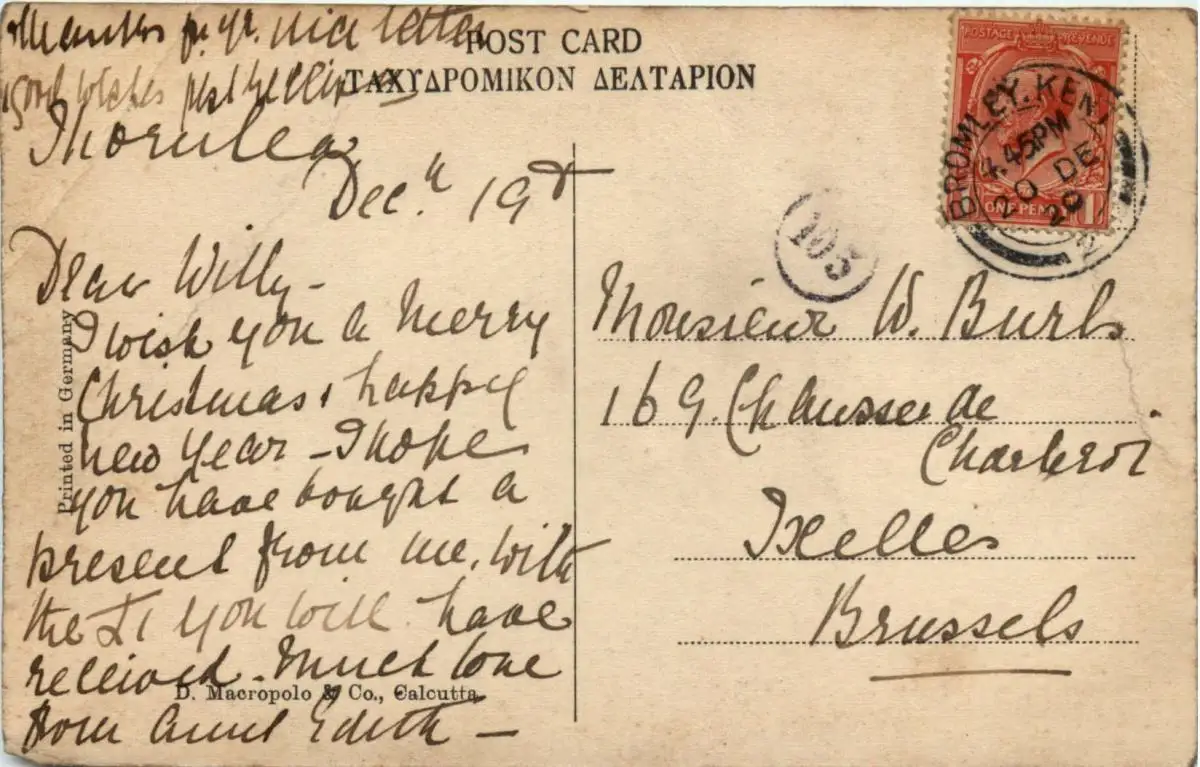 Thanks for yr. nice letter
& good wishes just recd
POST CARD
ΤΑΧΥΔΡΟΜΙΚΟΝ ΔΕΛΤΑΡΙΟΝ
Thornlea
Dec. 19th
Dear Willy -
I wish you a Merry
Christmas & happy
new year - I hope
you have bought a
present from me, with
the £1 you will have
received. Much love
from Aunt Edith -
Printed in Germany
D. Macropolo & Co., Calcutta.
POSTAGE REVENUE
ONE PENNY 1
BROMLEY. KENT
4.45PM
20 DE
20
2
105
Monsieur W. Burls
169. Chaussee de
Charleroi
Ixelles
Brussels